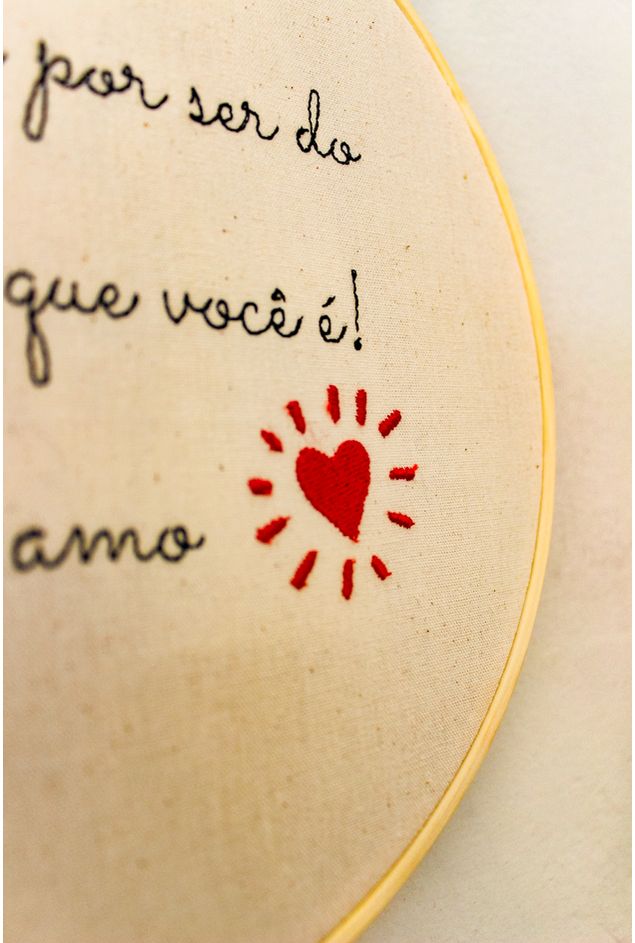 por ser do
que você é!
amo